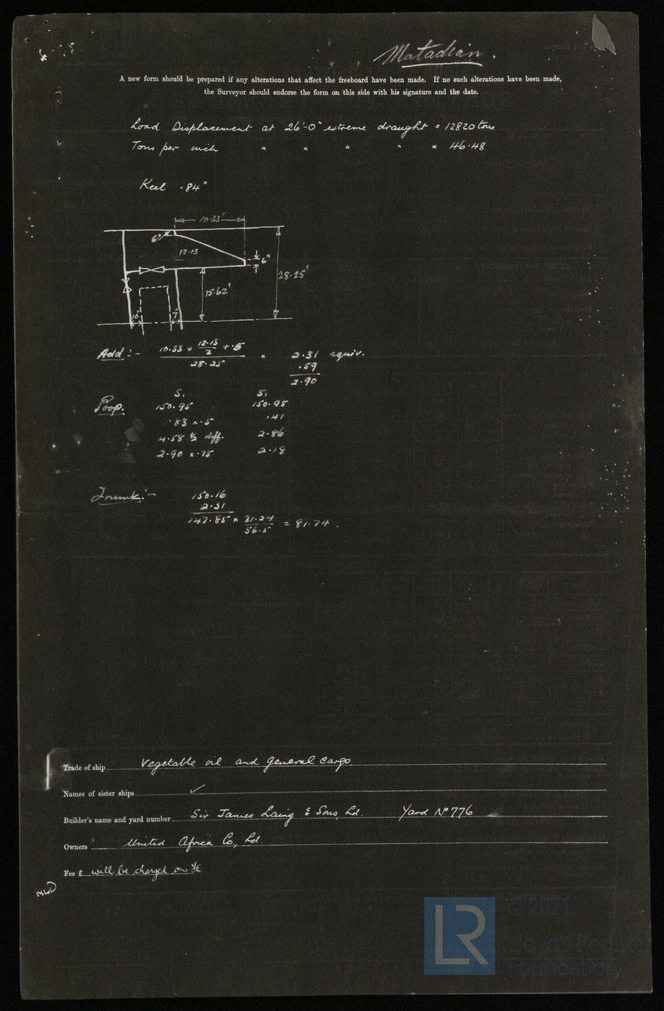 Matadian.
A new form should be prepared if any alterations that affect the freeboard have been made. If no such alterations have been made,
the Surveyor should endorse the form on this side with his signature and the date.
Load Displacement at 26'-0" extreme draught = 12820 tons
Tons per inch " " " " = 46.48
Keel .84"
10.33'
6"
12.13
6"
28.25'
15.62'
10"
7"
Add :- 10.33 x 12.13/2 + .5 / 28.25 = 2.31 equiv.
.59
2.90
S. S.
Poop. 150.95 150.95
.83 x .5 .41
4.58 ½ diff. 2.86
2.90 x .75 2.18
Trunk :- 150.16
2.31
147.85 x 31.24/56.5 = 81.74.
Trade of ship Vegetable oil and general cargo
Names of sister ships ✓
Builder's name and yard number Sir James Laing & Sons, Ld. Yard No 776
Owners United Africa Co, Ld
Fee £ will be charged on
© 2021
LR Lloyd's Register
Foundation